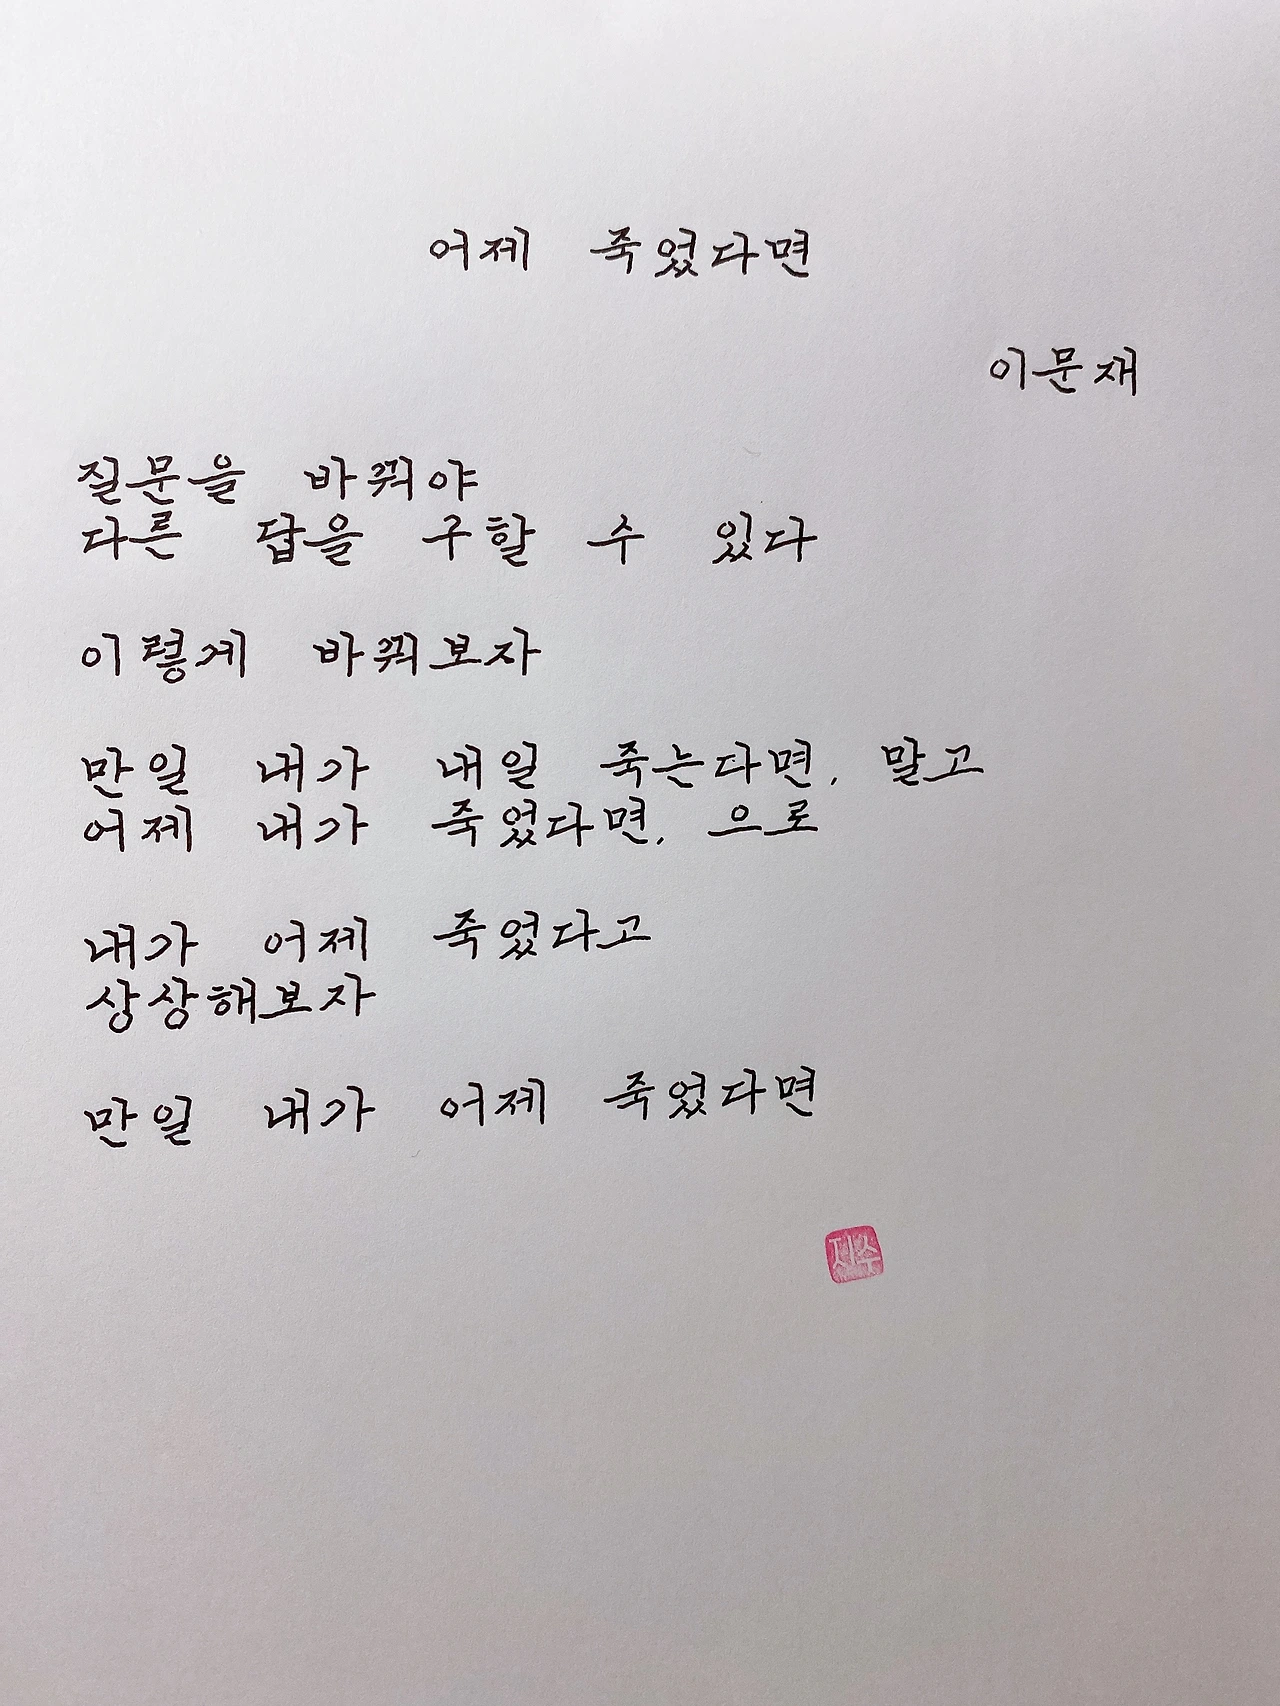 어제 죽었다면
이문재
질문을 바꿔야
다른 답을 구할 수 있다
이렇게 바꿔보자
만일 내가 내일 죽는다면, 말고
어제 내가 죽었다면, 으로
내가 어제 죽었다고
상상해보자
만일 내가 어제 죽었다면